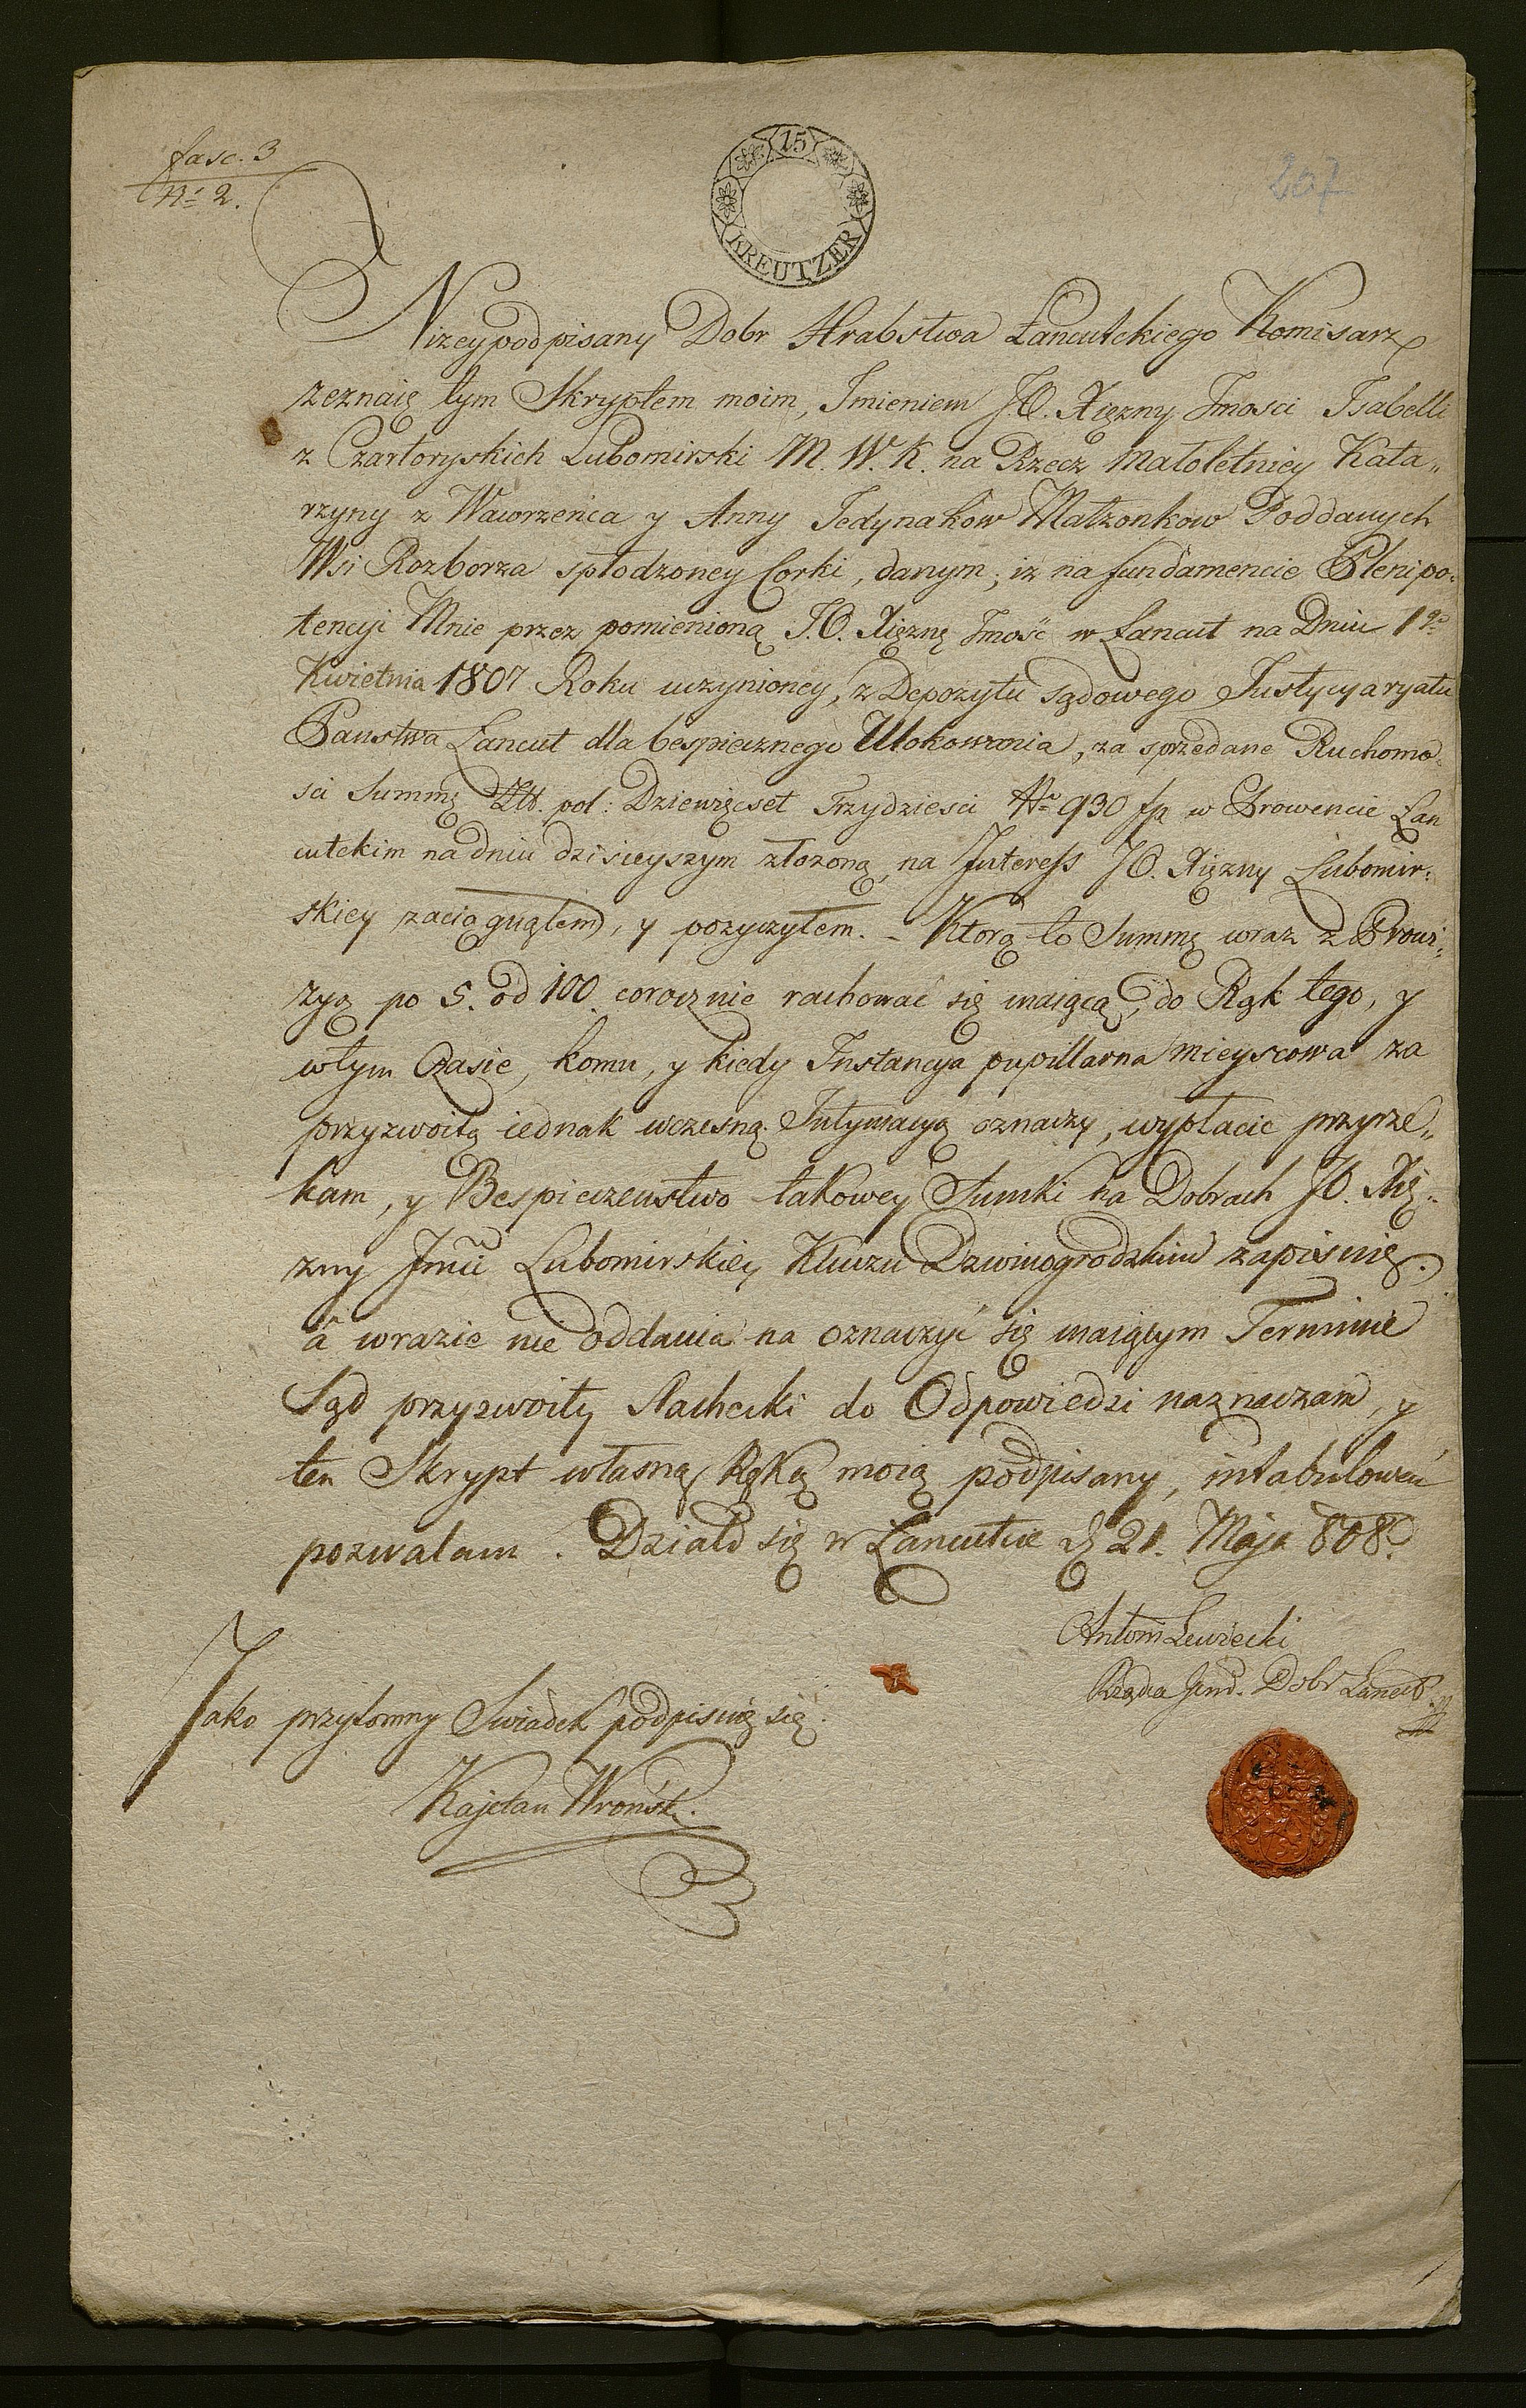 fasc. 3
Nº 2.
15
KREUTZER
207
Nizeypodpisany Dobr Hrabstwa Łancutckiego Komisarz
zeznaię tym Skryptem moim, Imieniem J.O. Xięzny Jmosci Isabelli
z Czartoryskich Lubomirski M. W. K. na Rzecz Małoletniey Kata„
rzyny z Wawrzeńca y Anny Jedynakow Małzonkow Poddanych
Wsi Rozborza spłodzoney Corki, danym; iz na fundamencie Plenipo„
tencyi Mnie przez pomienioną J.O. Xięznę Jmość w Łancut na Dniu 1go
Kwietnia 1807 Roku uczynioney, z Depozytu sądowego Justycyaryatu
Panstwa Łancut dla bespiecznego Ulokowania, za sprzedane Ruchomo„
sci Summę Złł. pol: Dziewięcset Trzydziesci Nº 930 fp w Prowencie Łan
cutckim na dniu dzisieyszym złozoną, na Interess JO. Xięzny Lubomir„
skiey zaciągnąłem, y pozyczyłem. - Ktorą to Summę wraz z Prowi„
zyą po 5. od 100. corocznie rachować się maiącą, do Rąk tego, y
wtym Czasie, komu, y kiedy Instancya pupillarna mieyscowa za
przyzwoitą iednak wczesną Intymacyą oznaczy, wypłacic przyrze„
kam, y Bespieczenstwo takowey Sumki na Dobrach JO. Xię„
zny Jmci Lubomirskiey Kluczu Dzwinogrodzkim zapisuię.
a wrazie nie oddania na oznaczyć się maiącym Terminie
Sąd przyzwoity Slachecki do Odpowiedzi naznaczam, y
ten Skrypt własną Ręką moią podpisany, intabulować
pozwalam. Działo się w Łancucie d 21. Maja 808.
Antoni Lewiecki
Rządca Jend. Dobr Łancut
Jako przytomny Swiadek podpisuię się.
Kajetan Wroński.